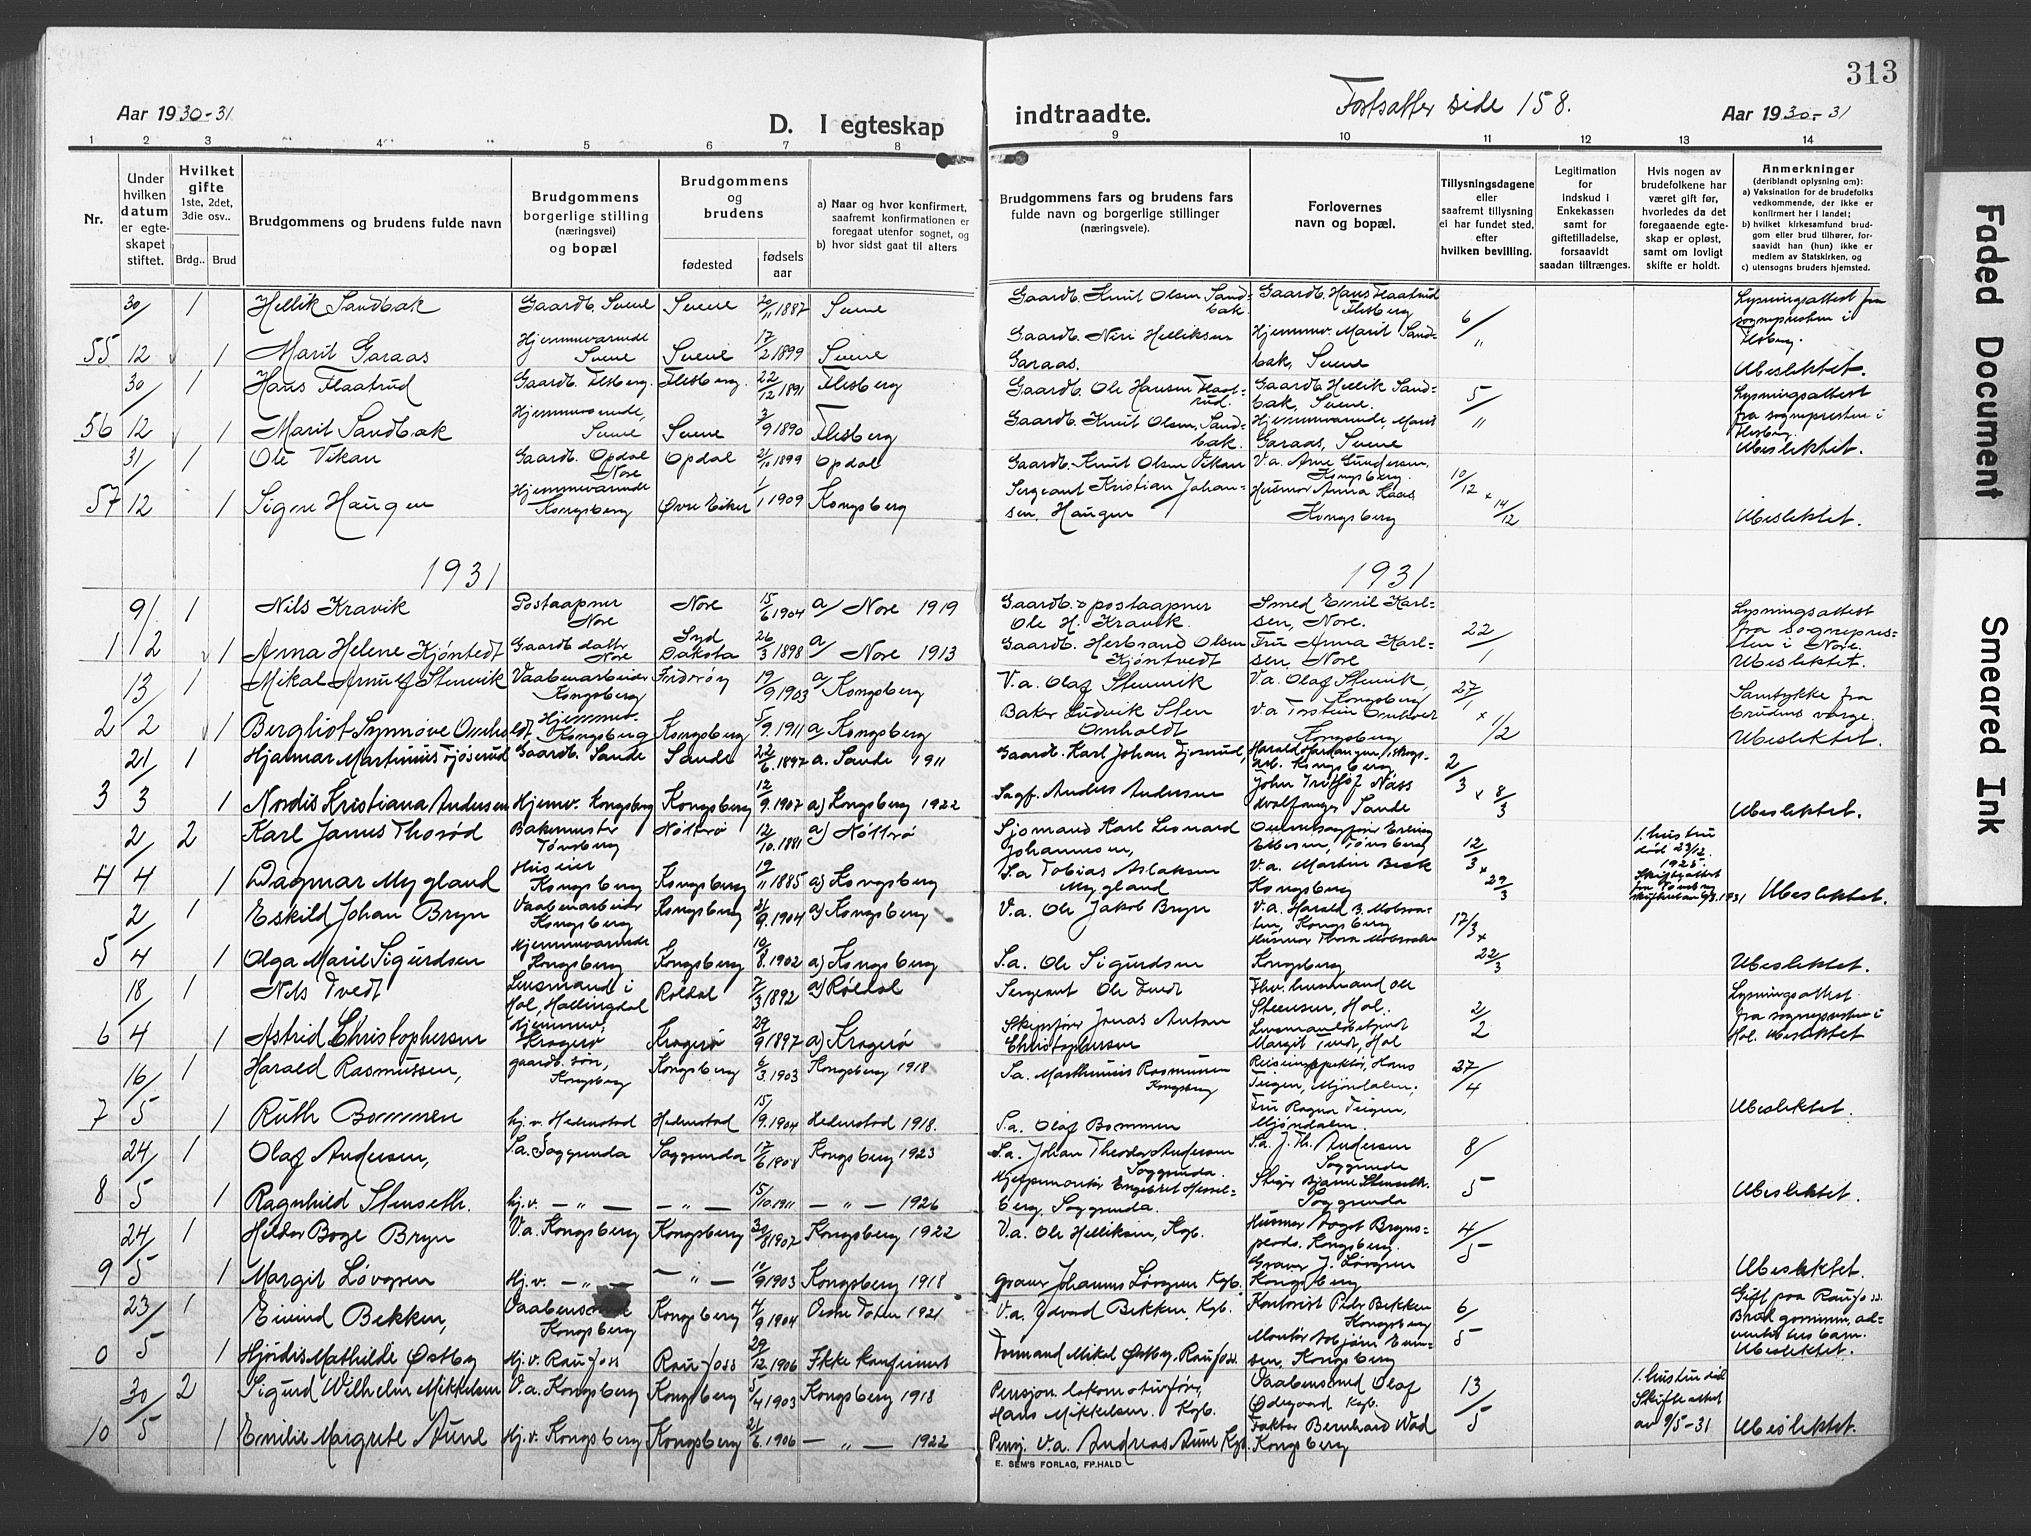 313
Aar 1930-31
D. I egteskap
indtraadte.
Fortsatter side 158.
Aar 1930-31
1 2 3 4 5 6 7 8 9 10 11 12 13 14
Nr.
Under hvilken datum er egteskapet stiftet.
Hvilket gifte 1ste, 2det, 3die osv..
Brdg.. Brud
Brudgommens og brudens fulde navn
Brudgommens borgerlige stilling (næringsvei) og bopæl
Brudgommens og brudens
fødested
fødsels aar
a) Naar og hvor konfirmert, saafremt konfirmationen er foregaat utenfor sognet, og
b) hvor sidst gaat til alters
Brudgommens fars og brudens fars fulde navn og borgerlige stillinger (næringsveie).
Forlovernes navn og bopæl.
Tillysningsdagene eller saafremt tillysning ei har fundet sted, efter hvilken bevilling.
Legitimation for indskud i Enkekassen samt for giftetilladelse, forsaavidt saadan tiltrænges.
Hvis nogen av brudefolkene har været gift før, hvorledes da det foregaaende egteskap er opløst, samt om lovligt skifte er holdt.
Anmerkninger (deriblandt oplysning om):
a) Vaksination for de brudefolks vedkommende, der ikke er konfirmert her i landet;
b) hvilket kirkesamfund brudgom eller brud tilhører, forsaavidt han (hun) ikke er medlem av Statskirken, og
c) utensogns bruders hjemsted.
30/ 1 Hellik Sandbak Gaardb. Svene Svene 20/11 1887 Svene Gaardb. Knut Olsen Sandbak. Gaardb. Hans Flaatrud Flesberg 6/ Lysningsattest fra sognepresten i Flesberg.
55 12 1 Marit Garaas Hjemmeværende Svene Svene 17/2 1899 Svene Gaardb. Neri Helliksen Garaas. Hjemmev. Marit Sandbak, Svene " Ubeslektet.
30/ 1 Hans Flaatrud Gaardb. Flesberg. Flesberg. 22/12 1891 Flesberg Gaardb. Ole Hansen Flaatrud. Gaardb. Hellik Sandbak, Svene. 5/ Lysningsattest fra sognepresten i Flesberg.
56 12 1 Marit Sandbak Hjemmeværende, Svene Svene 3/9 1890 Flesberg Gaardb. Knut Olsen Sandbak. Hjemmeværende Marit Garaas, Svene " Ubeslektet.
31/ 1 Ole Vikan Gaardb. Opdal Nore Opdal 21/10 1899 Opdal Gaardb. Knut Olsen Vikan V.a. Arne Gundersen, Kongsberg. 10/12
57 12 1 Signe Haugen Hjemmeværende Kongsberg Øvre Eiker 1/1 1909 Kongsberg Sergeant Kristian Johansen, Haugen Husmor Anna Kaas Kongsberg x 14/12 Ubeslektet.
1931 1931
9/ 1 Nils Kravik Postaapner Nore Nore 15/6 1904 a/ Nore 1919 Gaardb. & postaapner Ole H. Kravik. Smed Emil Karlsen, Nore. 22/ Lysningsattest fra sognepresten i Nore.
1 2 1 Anna Helene Kjøntvedt Gaard datter Nore Syd Dakota 26/3 1898 a/ Nore 1913 Gaardb. Herbrand Olsen Kjøntvedt Fru Anna Karlsen, Nore 1 Ubeslektet.
13/ 1 Mikal Arnulf Stenvik Vaabenarbeider Kongsberg Inderøy 19/9 1903 a/ Kongsberg V.a. Olaf Stenvik V.a. Olaf Stenvik, Kongsberg 27/1 Samtykke fra brudens værge.
2 2 1 Bergliot Synnøve Omholdt Hjemmev. Kongsberg Kongsberg 5/9 1911 a/ Kongsberg Baker Ludvik Sten Omholdt V.a Torstein Omholt Kongsberg x 1/2 Ubeslektet.
21/ 1 Hjalmar Martinius Fjøserud Gaardb. Sande Sande 22/6 1897 a. Sande 1911 Gaardb. Karl Johan Fjøserud, Kongsberg 2/3
3 3 1 Nordis Kristiana Andersen Hjemv. Kongsberg Kongsberg 12/9 1907 a) Kongsberg 1922 Sagf. Anders Andersen John Næss Sande x 8/3 Ubeslektet.
2/ 2 Karl James Thorød Bakermester Tønsberg Nøtterø 12/10 1881 a) Nøtterø Sjømand Karl Leonard Johannesen, Tønsberg 12/3 1. hustru død 23/12 1925. Skifteattest fra Tønsberg 1931
4 4 1 Dagmar Mygland Kongsberg Kongsberg 19/11 1885 a) Kongsberg S.a Tobias Aslaksen Mygland V.a. Martin Beck Kongsberg x 29/3 Ubeslektet.
2/ 1 Eskild Johan Bryn Vaabenarbeider Kongsberg Kongsberg 21/9 1904 a) Kongsberg V.a. Ole Jakob Bryn V.a. Harald B. Kongsberg 17/3 x
5 4 1 Olga Marie Sigurdsen Hjemmeværende Kongsberg Kongsberg 10/8 1902 a) Kongsberg S.a. Ole Sigurdsen Husmor Thora Kongsberg 22/3 Ubeslektet.
18/ 1 Nils Tvedt Lensmand i Hol, Hallingdal Røldal 7/3 1892 a) Røldal Sergeant Ole Tvedt Fhv. lensmand Ole Steensen, Hol. 2/ Lysningsattest fra sognepresten i Hol.
6 4 1 Astrid Christophersen Hjemmev. Kragerø Kragerø 29/9 1897 a) Kragerø Skipsfører Jonas Anton Christophersen Margit Tvedt, Hol 2 Ubeslektet
16/ 1 Harald Rasmussen, gaardb. søn, Kongsberg Kongsberg 6/3 1903 Kongsberg 1918 S.a. Marthinius Rasmussen Kongsberg Reiseinspektør, Hans Teigen, Mjøndalen; 27/4
7 5 1 Ruth Bommen hj.v. Hedenstad Hedenstad 15/9 1904 Hedenstad 1918. S.a. Olaf Bommen Fru Ragna Teigen, Mjøndalen. Ubeslektet.
24/ 1 Olaf Andersen, S.a. Saggrenda Saggrenda 17/6 1908 Kongsberg 1923 S.a. Johan Theodor Andersen Saggrenda. S.a. J. Th. Andersen Saggrenda 8/
8 5 1 Ragnhild Stenseth. hj.v. — " — — " — 15/10 1911 — " — 1926 Engebret Saggrenda. Stiger Bjarne Stenseth. Saggrenda 5 Ubeslektet.
24/ 1 Hilder Boge Bryn V.a. Kongsberg Kongsberg 30/8 1907 Kongsberg 1922 V.a. Ole Helliksen, Kgb. Husmor Kongsberg. 4/5
9 5 1 Margit Løvgren Hj.v. — " — — " — 1903 Kongsberg 1918 Graver Johannes Løvgren Kgb. Graver J. Løvgren Kongsberg Ubeslektet.
23/ 1 Eivind Bekken, Kongsberg Kongsberg 4/9 1904 Vestre Toten 1921 V.a. Edvard Bekken, Kgb. Kontorist Peder Bekken Kongsberg 6/5 Gift paa Raufoss. Brudgommen, adventist barn.
0 5 1 Hjørdis Mathilde Østby Hj.v. Raufoss Raufoss 29/12 1906 Ikke konfirmert Formand Mikal Østby, Raufoss. Montør Kongsberg Ubeslektet.
30/ 2 Sigurd Wilhelm Mikkelsen V.a. Kongsberg Kongsberg 5/4 1903 Kongsberg 1918 Pensjon. lokomotivfører, Hans Mikkelsen. Kgb. Vaabensmed Olaf Ødegaard Kgb. 13/5 1. hustru død Skifteattest av 9/5-31
10 5 1 Emilie Margrete Aune Hj.v. Kongsberg Kongsberg 21/6 1906 — " — 1922 Pensj. V.a. Andreas Aune Kgb. Faktor Bernhard Wad Kongsberg Ubeslektet.
E. SEM'S FORLAG, FP.HALD
Faded Document
Smeared Ink